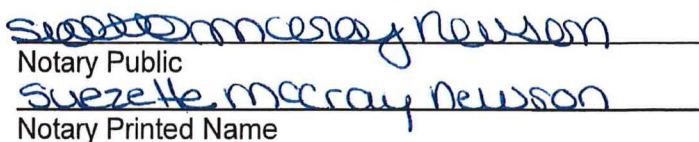 Suezette McCray Newson
Notary Public
Suezette McCray Newson
Notary Printed Name